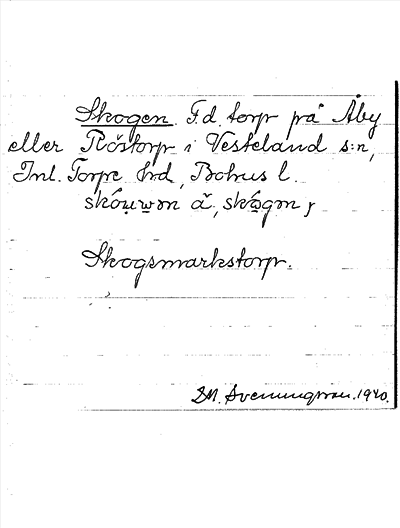 Skogen F.d. torp på Åby
eller Röstorp i Vesteland s:n,
Inl. Torpe hrd, Bohus l.
skóu̯wən ä̆, skó̱gən,
Skogsmarkstorp.
1940.